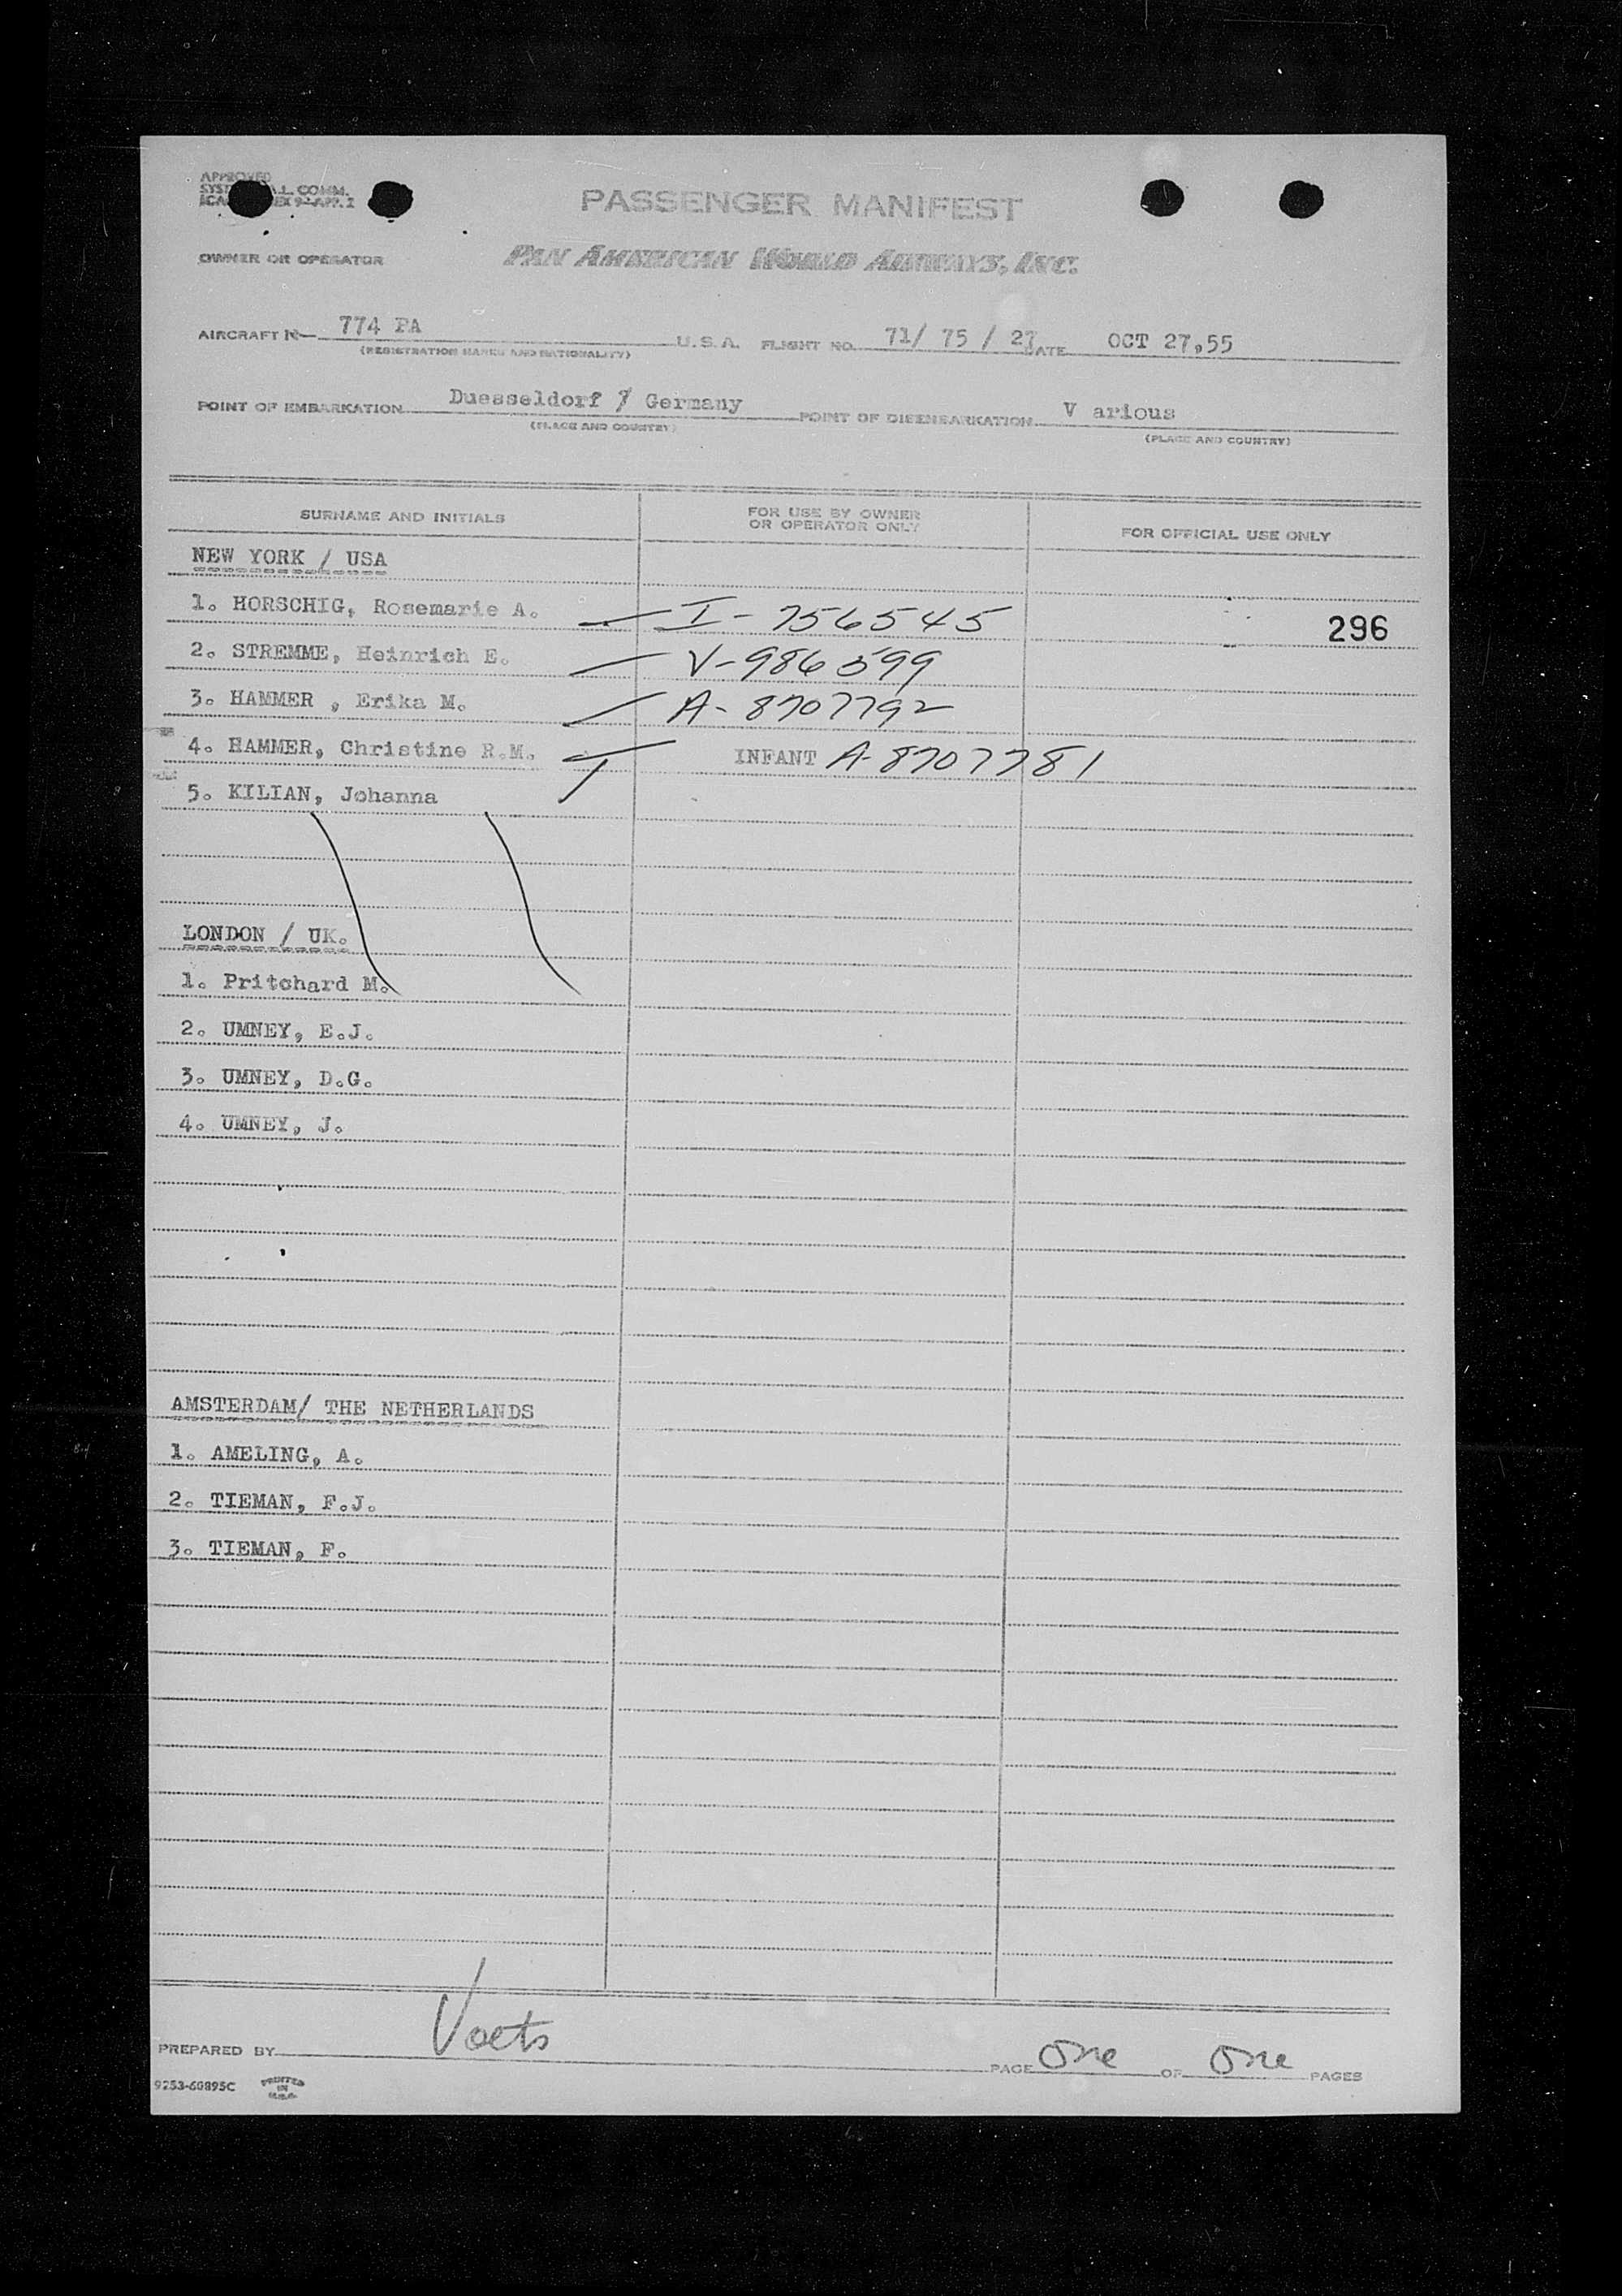 APPROVED
SYST A.L. COMM.
ICA EX 9-APP. 2
PASSENGER MANIFEST
OWNER OR OPERATOR PAN AMERICAN WORLD AIRWAYS, INC.
AIRCRAFT N 774 PA U.S.A. FLIGHT NO. 71/ 75 / 27 DATE OCT 27,55
(REGISTRATION MARKS AND NATIONALITY)
POINT OF EMBARKATION Duesseldorf / Germany POINT OF DISEMBARKATION V arious
(PLACE AND COUNTRY) (PLACE AND COUNTRY)
SURNAME AND INITIALS FOR USE BY OWNER OR OPERATOR ONLY FOR OFFICIAL USE ONLY
NEW YORK / USA
1. HORSCHIG, Rosemarie A. I-756545 296
2. STREMME, Heinrich E. V-986599
3. HAMMER , Erika M. A-8707792
4. HAMMER, Christine R.M. INFANT A-8707781
5. KILIAN, Johanna
LONDON / UK.
1. Pritchard M.
2. UMNEY, E.J.
3. UMNEY, D.G.
4. UMNEY, J.
AMSTERDAM/ THE NETHERLANDS
1. AMELING, A.
2. TIEMAN, F.J.
3. TIEMAN, F.
PREPARED BY Voets PAGE One OF One PAGES
9253-60895C PRINTED IN U.S.A.